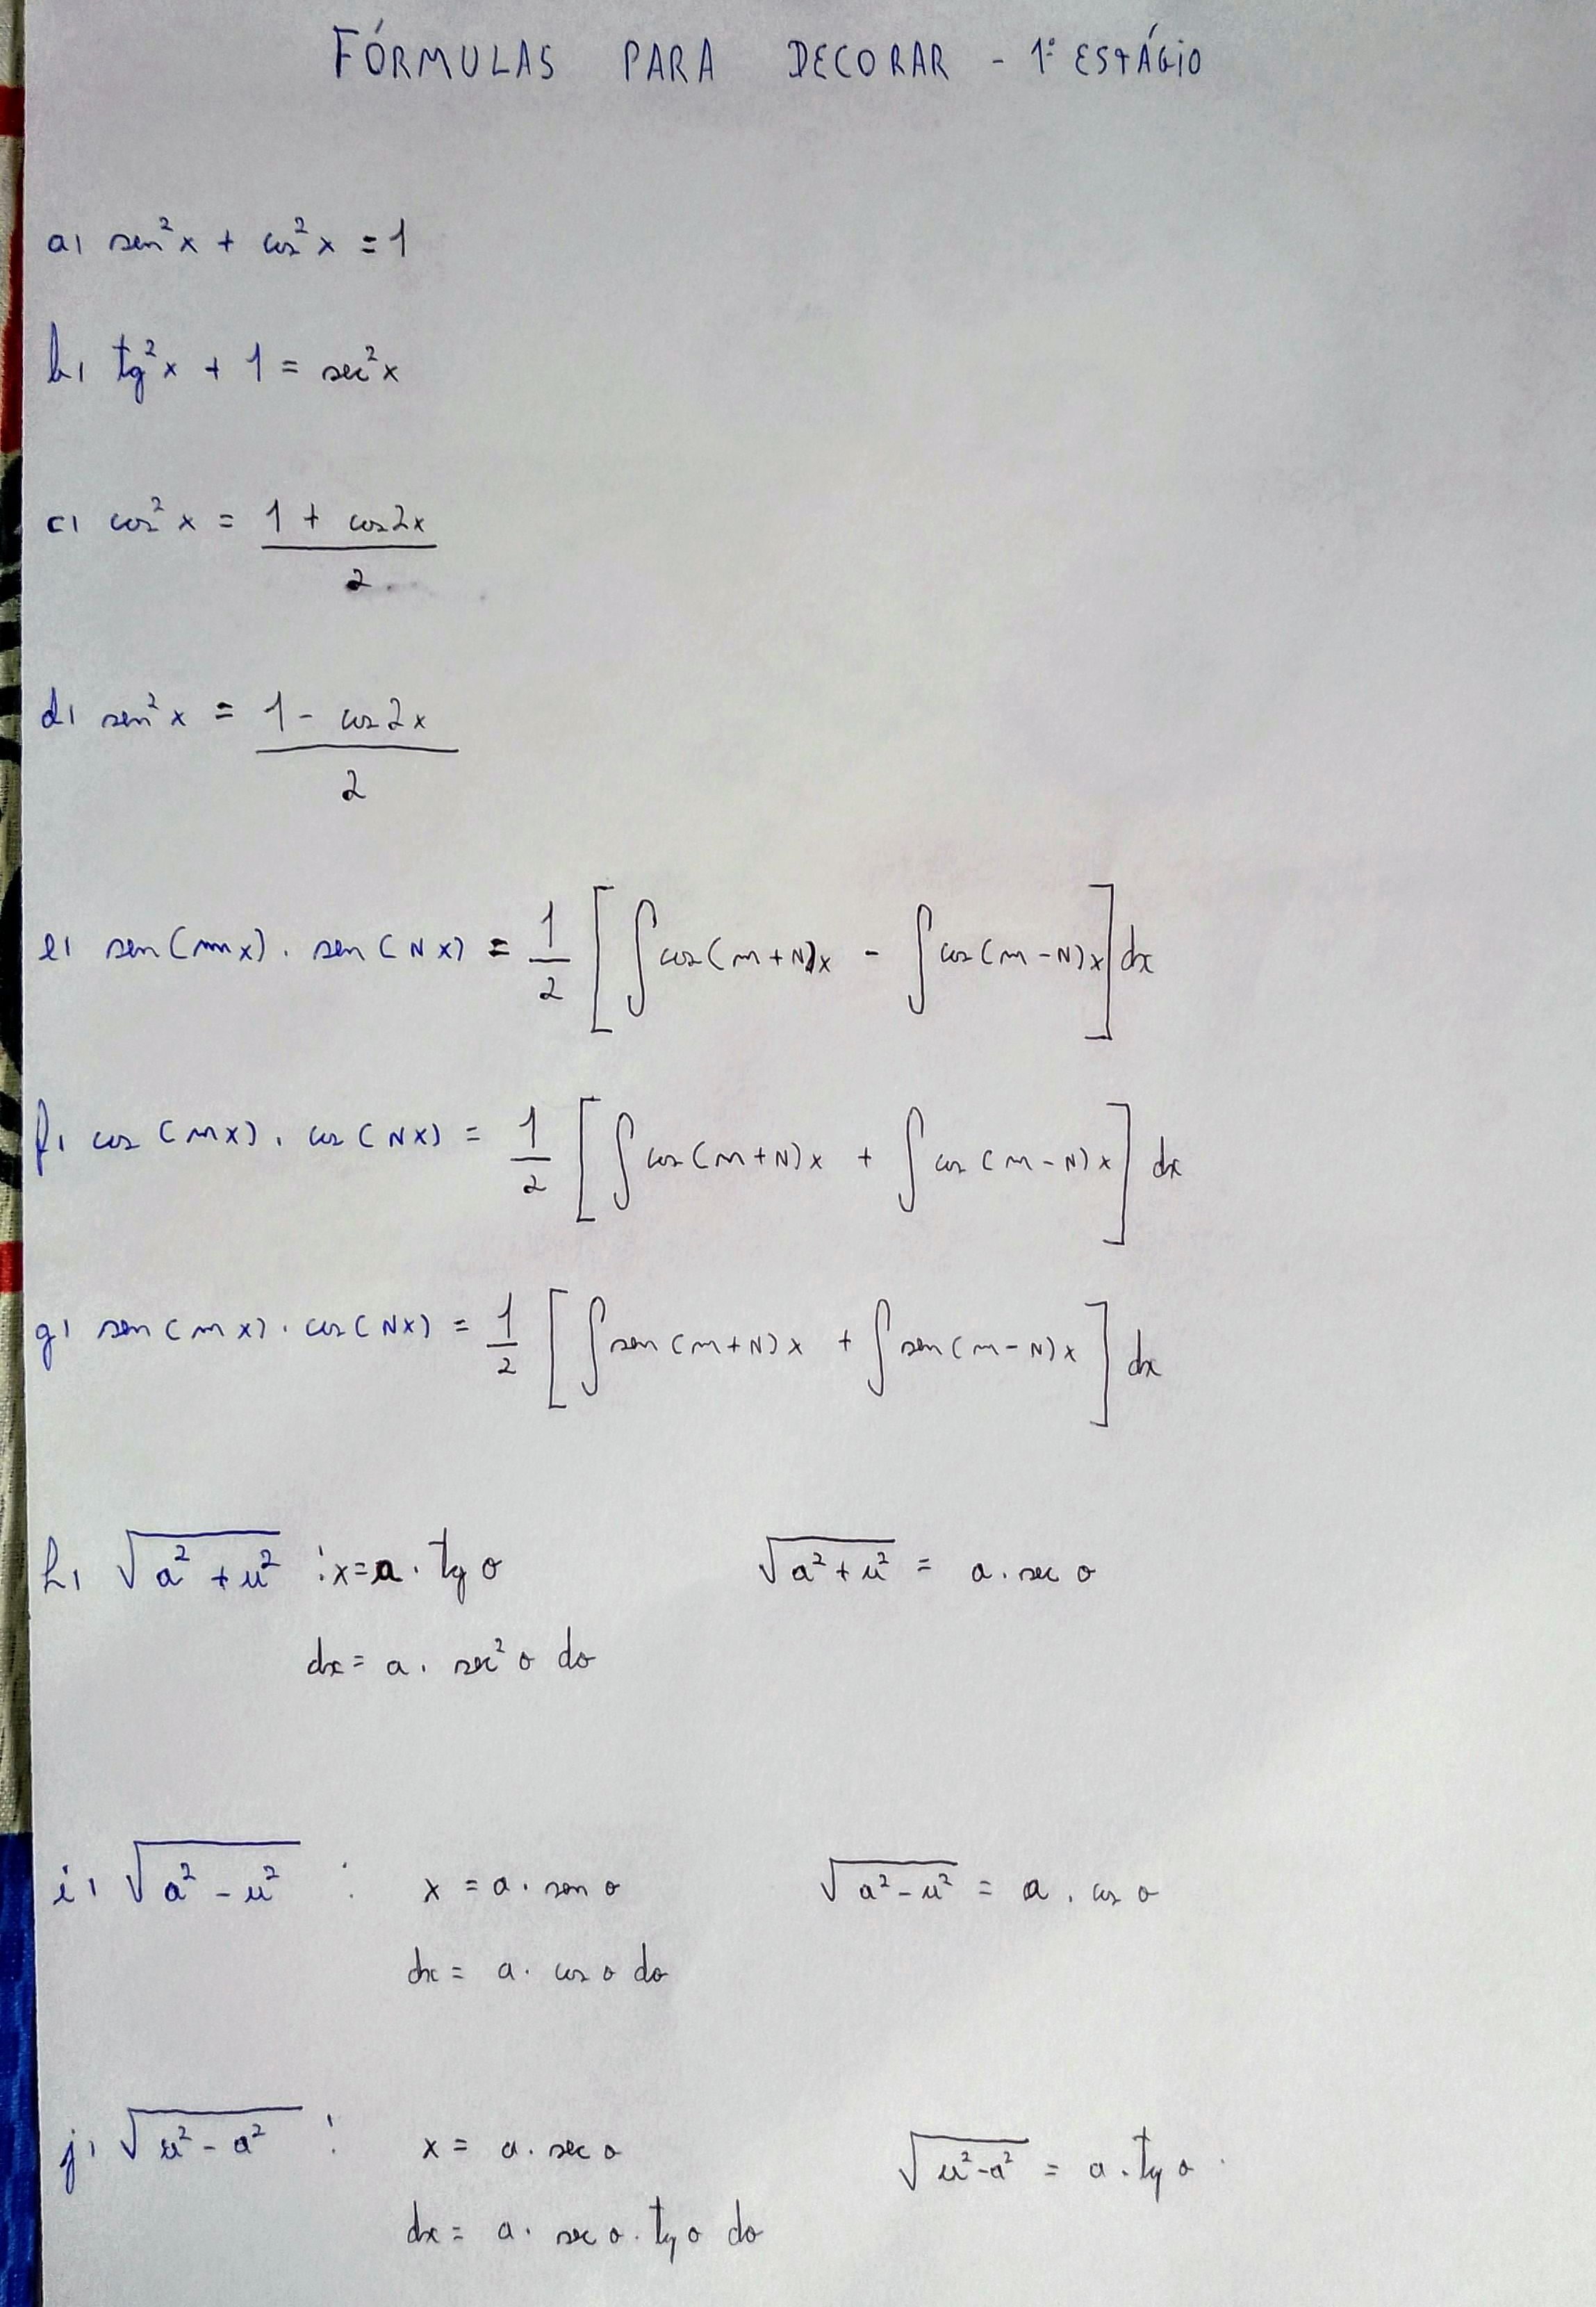 FÓRMULAS PARA DECORAR - 1º ESTÁGIO
a) sen²x + cos²x = 1
b) tg²x + 1 = sec²x
c) cos²x = (1 + cos2x)/2
d) sen²x = (1 - cos2x)/2
e) sen(mx) . sen(Nx) = 1/2 [∫cos(m+N)x - ∫cos(m-N)x] dx
f) cos(mx) . cos(Nx) = 1/2 [∫cos(m+N)x + ∫cos(m-N)x] dx
g) sen(mx) . cos(Nx) = 1/2 [∫sen(m+N)x + ∫sen(m-N)x] dx
h) √(a² + u²) : x = a . tg θ √(a² + u²) = a . sec θ
dx = a . sec² θ dθ
i) √(a² - u²) : x = a . sen θ √(a² - u²) = a . cos θ
dx = a . cos θ dθ
j) √(u² - a²) : x = a . sec θ √(u² - a²) = a . tg θ
dx = a . sec θ . tg θ dθ